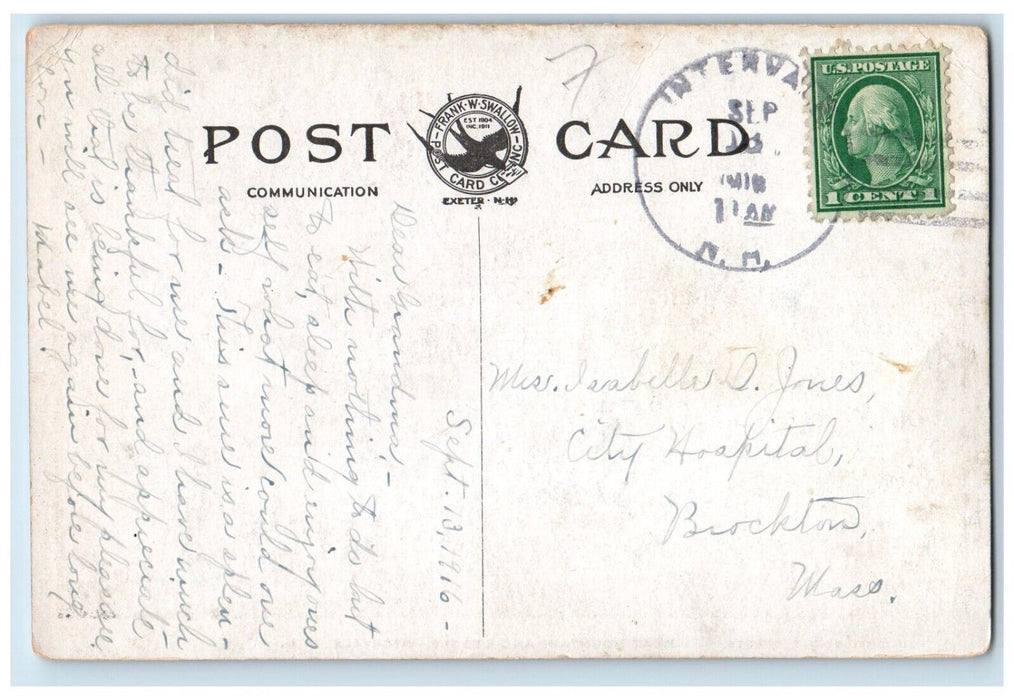 POST CARD
FRANK·W·SWALLOW
EST 1904
INC. 1911
POST CARD CO. INC.
EXETER · N·H
COMMUNICATION
ADDRESS ONLY
INTERVA
SEP
13
11 AM
N. H.
U.S. POSTAGE
1 CENT 1
Sept. 13, 1916 -
Dear Grandma -
With nothing to do but
to eat, sleep and enjoy one
self what more could one
ask - This sure is a splen-
did treat for me and I have much
to be thankful for, - and appreciate
all that is being done for my pleasure.
You will see me again before long.
Love - Mabel.
Miss. Isabelle D. Jones,
City Hospital,
Brockton,
Mass.